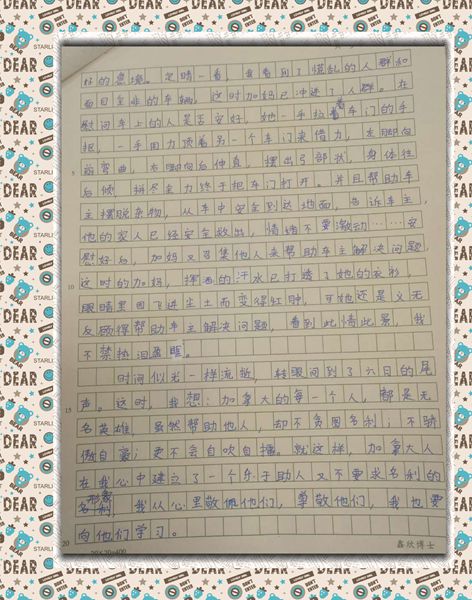 好的意境。定睛一看，我看到了慌乱的人群和
面目全非的车辆，这时加妈已冲进了人群。在
慰问车上的人是否安好，她一手拉着车门的手
把，一手用力顶着另一个车门来借力，左脚向
前弯曲，右脚向后伸直，摆出弓部状，身体往
5
后倾，拼尽全力终于把车门打开。并且帮助车
主摆脱杂物，从车中安全到达地面，告诉车主，
他的家人已经安全救出，情绪不要激动……安
慰好后，加妈又召集他人来帮助车主解决问题，
这时的加妈，挥洒的汗水已打透了她的衣衫，
10
眼睛里因飞进尘土而变得红肿，可她还是义无
反顾得帮助车主解决问题，看到此情此景，我
不禁热泪盈眶。
时间似光一样流逝，转眼间到了六日的尾
声。这时，我想：加拿大的每一个人，都是无
15
名英雄，虽然帮助他人，却不贪图名利；不骄
傲自豪；更不会自吹自擂。就这样，加拿大人
在我心中建立了一个乐于助人又不要求名利的
形象
名利，我从心里敬佩他们，尊敬他们，我也要
向他们学习。
20
20×20=400
鑫欣博士
DEAR
STARLI
DON'T
ENTER